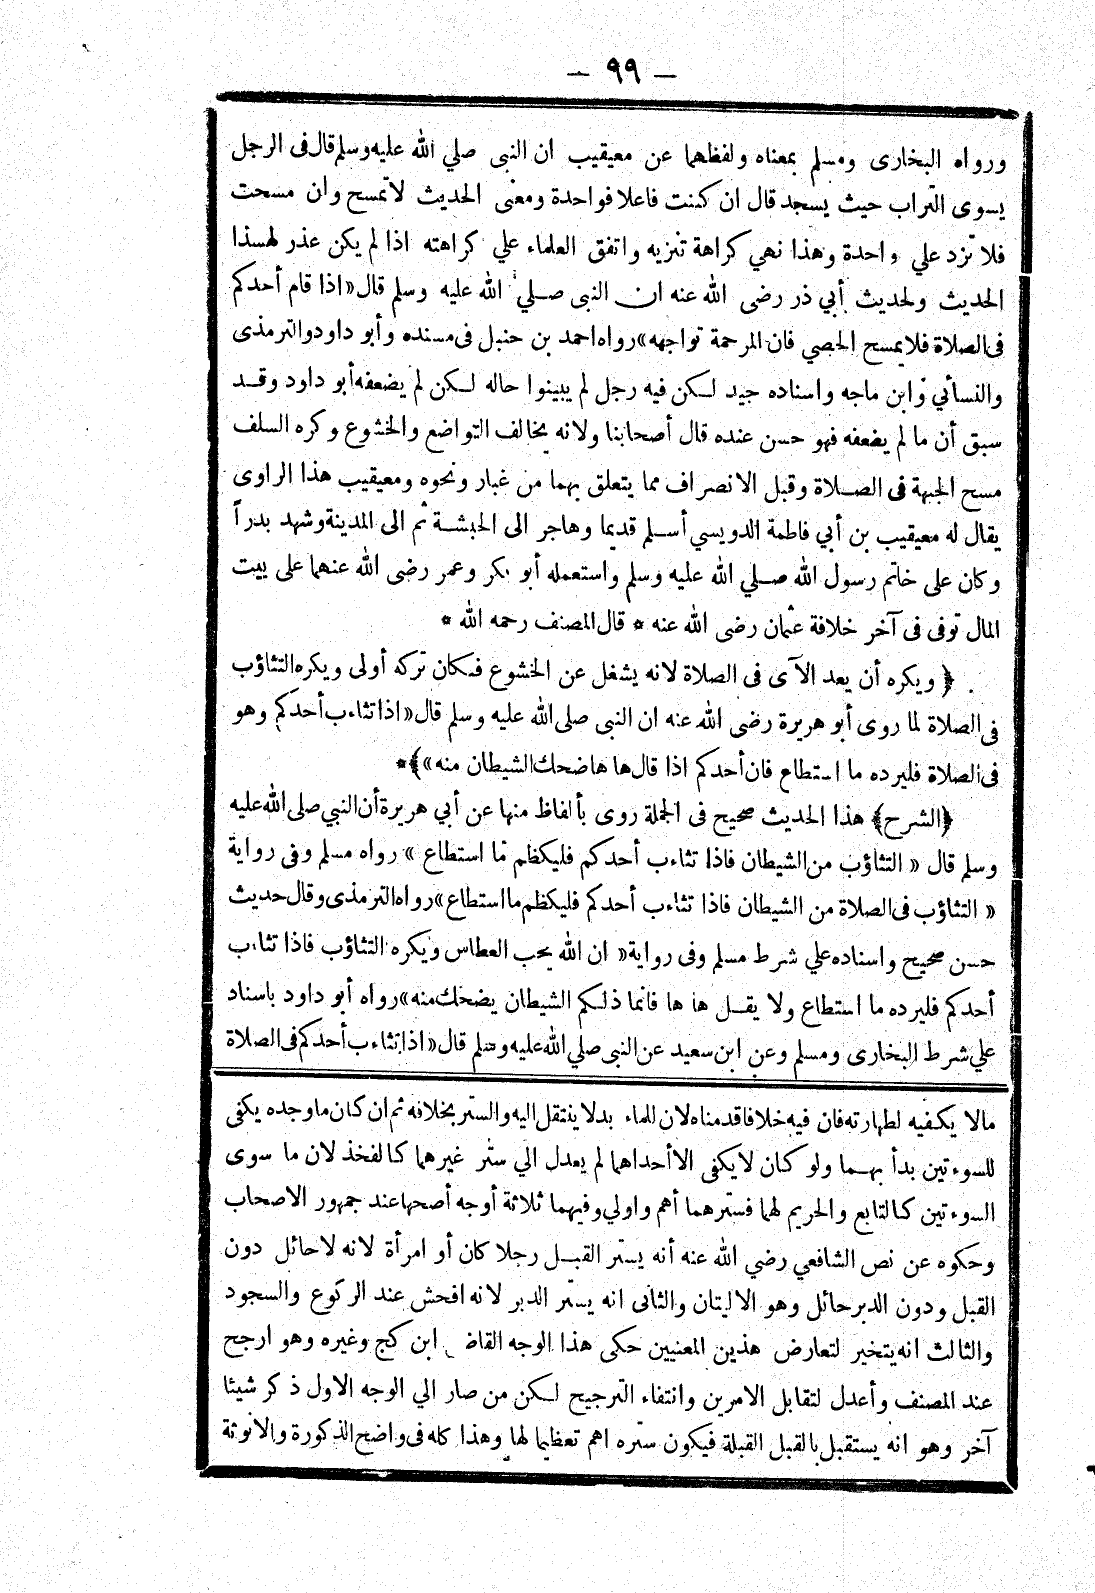 — ٩٩ —
ورواه البخارى ومسلم بمعناه ولفظهما عن معيقيب ان النبى صلي الله عليه وسلم قال فى الرجل
يسوى التراب حيث يسجد قال ان كنت فاعلا فواحدة ومعنى الحديث لا تمسح وان مسحت
فلا تزد علي واحدة وهذا نهي كراهة تنزيه واتفق العلماء علي كراهته اذا لم يكن عذر لهذا
الحديث ولحديث أبي ذر رضى الله عنه ان النبى صلي الله عليه وسلم قال «اذا قام أحدكم
فى الصلاة فلا يمسح الحصي فان المرحمة تواجهه» رواه احمد بن حنبل فى مسنده وأبو داود والترمذى
والنسائي وابن ماجه واسناده جيد لكن فيه رجل لم يبينوا حاله لكن لم يضعفه أبو داود وقد
سبق أن ما لم يضعفه فهو حسن عنده قال أصحابنا ولانه يخالف التواضع والخشوع وكره السلف
مسح الجبهة فى الصلاة وقبل الانصراف مما يتعلق بهما من غبار ونحوه ومعيقيب هذا الراوى
يقال له معيقيب بن أبي فاطمة الدويسي أسلم قديما وهاجر الى الحبشة ثم الى المدينة وشهد بدراً
وكان على خاتم رسول الله صلي الله عليه وسلم واستعمله أبو بكر وعمر رضى الله عنهما على بيت
المال توفى فى آخر خلافة عثمان رضى الله عنه * قال المصنف رحمه الله *
﴿ ويكره أن يعد الآى فى الصلاة لانه يشغل عن الخشوع فكان تركه أولى ويكره التثاؤب
فى الصلاة لما روى أبو هريرة رضى الله عنه ان النبى صلى الله عليه وسلم قال «اذا تثاءب أحدكم وهو
فى الصلاة فليرده ما استطاع فان أحدكم اذا قال ها ها ضحك الشيطان منه» ﴾ *
﴿الشرح﴾ هذا الحديث صحيح فى الجملة روى بألفاظ منها عن أبي هريرة أن النبي صلى الله عليه
وسلم قال « التثاؤب من الشيطان فاذا تثاءب أحدكم فليكظم ما استطاع » رواه مسلم وفى رواية
« التثاؤب فى الصلاة من الشيطان فاذا تثاءب أحدكم فليكظم ما استطاع» رواه الترمذى وقال حديث
حسن صحيح واسناده علي شرط مسلم وفى رواية « ان الله يحب العطاس ويكره التثاؤب فاذا تثاءب
أحدكم فليرده ما استطاع ولا يقل ها ها فانما ذلكم الشيطان يضحك منه» رواه أبو داود باسناد
علي شرط البخارى ومسلم وعن ابن سعيد عن النبى صلي الله عليه وسلم قال «اذا تثاءب أحدكم فى الصلاة
مالا يكفيه لطهارته فان فيه خلافا قدمناه لان للماء بدلا ينتقل اليه والستر بخلافه ثم ان كان ما وجده يكفى
للسوءتين بدأ بهما ولو كان لا يكفى الا أحداهما لم يعدل الي ستر غيرهما كالفخذ لان ما سوى
السوءتين كالتابع والحريم لهما فسترهما أهم واولي وفيهما ثلاثة أوجه أصحها عند جمهور الاصحاب
وحكوه عن نص الشافعي رضي الله عنه أنه يستر القبل رجلا كان أو امرأة لانه لا حائل دون
القبل ودون الدبر حائل وهو الاليتان والثانى انه يستر الدبر لانه افحش عند الركوع والسجود
والثالث انه يتخير لتعارض هذين المعنيين حكى هذا الوجه القاضى ابن كج وغيره وهو ارجح
عند المصنف وأعدل لتقابل الامرين وانتفاء الترجيح لكن من صار الي الوجه الاول ذكر شيئا
آخر وهو انه يستقبل بالقبل القبلة فيكون ستره اهم تعظيما لها وهذا كله فى واضح الذكورة والانوثة